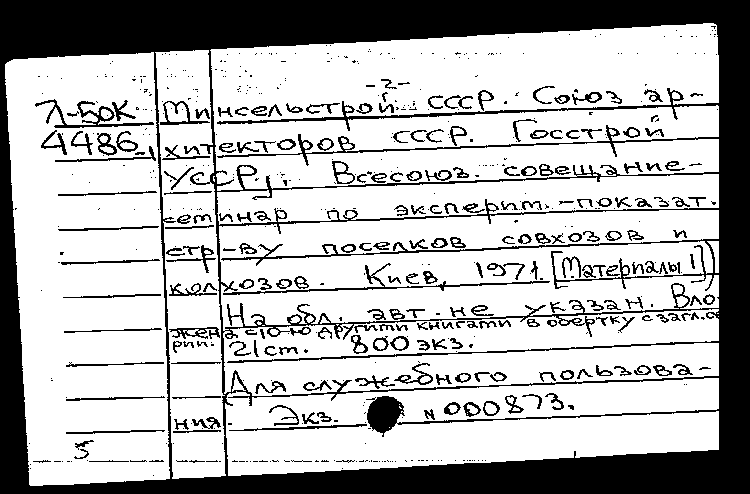 -2-
Л-БОК Минсельстрой СССР. Союз ар-
4486-1 хитекторов СССР. Госстрой
УССР]. Всесоюз. совещание-
семинар по эксперим.-показат.
стр-ву поселков совхозов и
колхозов. Киев, 1971. [Материалы 1])
На обл. авт. не указан. Вло-
жена с 10-ю другими книгами в обертку с загл. се
рии. 21 ст. 800 экз.
Для служебного пользова-
ния. Экз. N 000873.
5